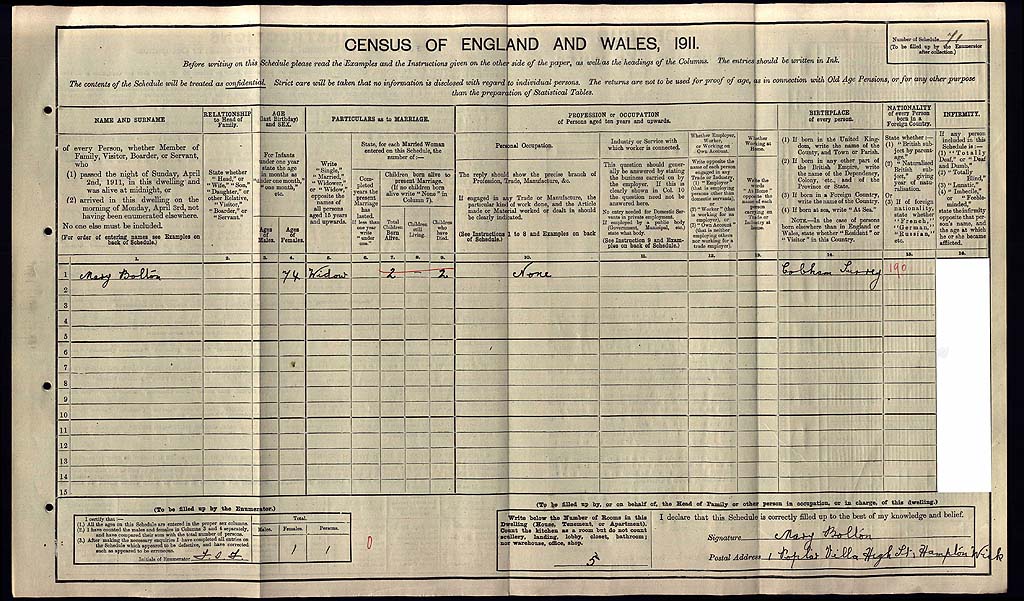 CENSUS OF ENGLAND AND WALES, 1911.
Number of Schedule 71
(To be filled up by the Enumerator
after collection.)
Before writing on this Schedule please read the Examples and the Instructions given on the other side of the paper, as well as the headings of the Columns. The entries should be written in Ink.
The contents of the Schedule will be treated as confidential. Strict care will be taken that no information is disclosed with regard to individual persons. The returns are not to be used for proof of age, as in connection with Old Age Pensions, or for any other purpose
than the preparation of Statistical Tables.
NAME AND SURNAME
of every Person, whether Member of
Family, Visitor, Boarder, or Servant,
who
(1) passed the night of Sunday, April
2nd, 1911, in this dwelling and
was alive at midnight, or
(2) arrived in this dwelling on the
morning of Monday, April 3rd, not
having been enumerated elsewhere.
No one else must be included.
(For order of entering names see Examples on
back of Schedule.)
RELATIONSHIP
to Head of
Family.
State whether
"Head," or
"Wife," "Son,"
"Daughter," or
other Relative,
"Visitor,"
"Boarder," or
"Servant."
AGE
(last Birthday)
and SEX.
For Infants
under one year
state the age
in months as
"under one month,"
"one month,"
etc.
Ages
of
Males.
Ages
of
Females.
PARTICULARS as to MARRIAGE.
Write
"Single,"
"Married,"
"Widower,"
or "Widow,"
opposite the
names of
all persons
aged 15 years
and upwards.
State, for each Married Woman
entered on this Schedule, the
number of:—
Completed
years the
present
Marriage
has
lasted.
If less than
one year
write
"under
one."
Children born alive to
present Marriage.
(If no children born
alive write "None" in
Column 7).
Total
Children
Born
Alive.
Children
still
Living.
Children
who
have
Died.
PROFESSION or OCCUPATION
of Persons aged ten years and upwards.
Personal Occupation.
The reply should show the precise branch of
Profession, Trade, Manufacture, &c.
If engaged in any Trade or Manufacture, the
particular kind of work done, and the Article
made or Material worked or dealt in should
be clearly indicated.
(See Instructions 1 to 8 and Examples on back
of Schedule.)
Industry or Service with
which worker is connected.
This question should generally
be answered by stating
the business carried on by
the employer. If this is
clearly shown in Col. 10
the question need not be
answered here.
No entry needed for Domestic Servants
in private employment.
If employed by a public body
(Government, Municipal, etc.)
state what body.
(See Instruction 9 and Examples
on back of Schedule.)
Whether Employer,
Worker, or
Working on
Own Account.
Write opposite the
name of each person
engaged in any
Trade or Industry,
(1) "Employer"
(that is employing
persons other than
domestic servants),
or
(2) "Worker" (that
is working for an
employer), or
(3) "Own Account"
(that is neither
employing others
nor working for a
trade employer).
Whether
Working at
Home.
Write the
words
"At Home"
opposite the
name of each
person
carrying on
Trade or
Industry at
home.
BIRTHPLACE
of every person.
(1) If born in the United Kingdom,
write the name of the
County, and Town or Parish.
(2) If born in any other part of
the British Empire, write
the name of the Dependency,
Colony, etc., and of the
Province or State.
(3) If born in a Foreign Country,
write the name of the Country.
(4) If born at sea, write "At Sea."
NOTE.—In the case of persons
born elsewhere than in England or
Wales, state whether "Resident" or
"Visitor" in this Country.
NATIONALITY
of every Person
born in a
Foreign Country.
State whether:—
(1) "British subject
by parentage,"
(2) "Naturalised
British
subject," giving
year of naturalisation.
Or
(3) If of foreign
nationality,
state whether
"French,"
"German,"
"Russian,"
etc.
INFIRMITY.
If any person
included in this
Schedule is:—
(1) "Totally
Deaf," or "Deaf
and Dumb,"
(2) "Totally
Blind,"
(3) "Lunatic,"
(4) "Imbecile,"
or "Feeble-minded,"
state the infirmity
opposite that person's
name, and
the age at which
he or she became
afflicted.
1. 2. 3. 4. 5. 6. 7. 8. 9. 10. 11. 12. 13. 14. 15. 16.
1 Mary Bolton 74 Widow 2 2 None Cobham Surrey 190
2
3
4
5
6
7
8
9
10
11
12
13
14
15
(To be filled up by the Enumerator.)
I certify that:—
(1.) All the ages on this Schedule are entered in the proper sex columns.
(2.) I have counted the males and females in Columns 3 and 4 separately,
and have compared their sum with the total number of persons.
(3.) After making the necessary enquiries I have completed all entries on
the Schedule which appeared to be defective, and have corrected
such as appeared to be erroneous.
Initials of Enumerator
Total.
Males. Females. Persons.
1 1 0
(To be filled up by, or on behalf of, the Head of Family or other person in occupation, or in charge, of this dwelling.)
Write below the Number of Rooms in this
Dwelling (House, Tenement, or Apartment).
Count the kitchen as a room but do not count
scullery, landing, lobby, closet, bathroom;
nor warehouse, office, shop.
5
I declare that this Schedule is correctly filled up to the best of my knowledge and belief.
Signature Mary Bolton
Postal Address 1 Poplar Villa High St, Hampton Wick